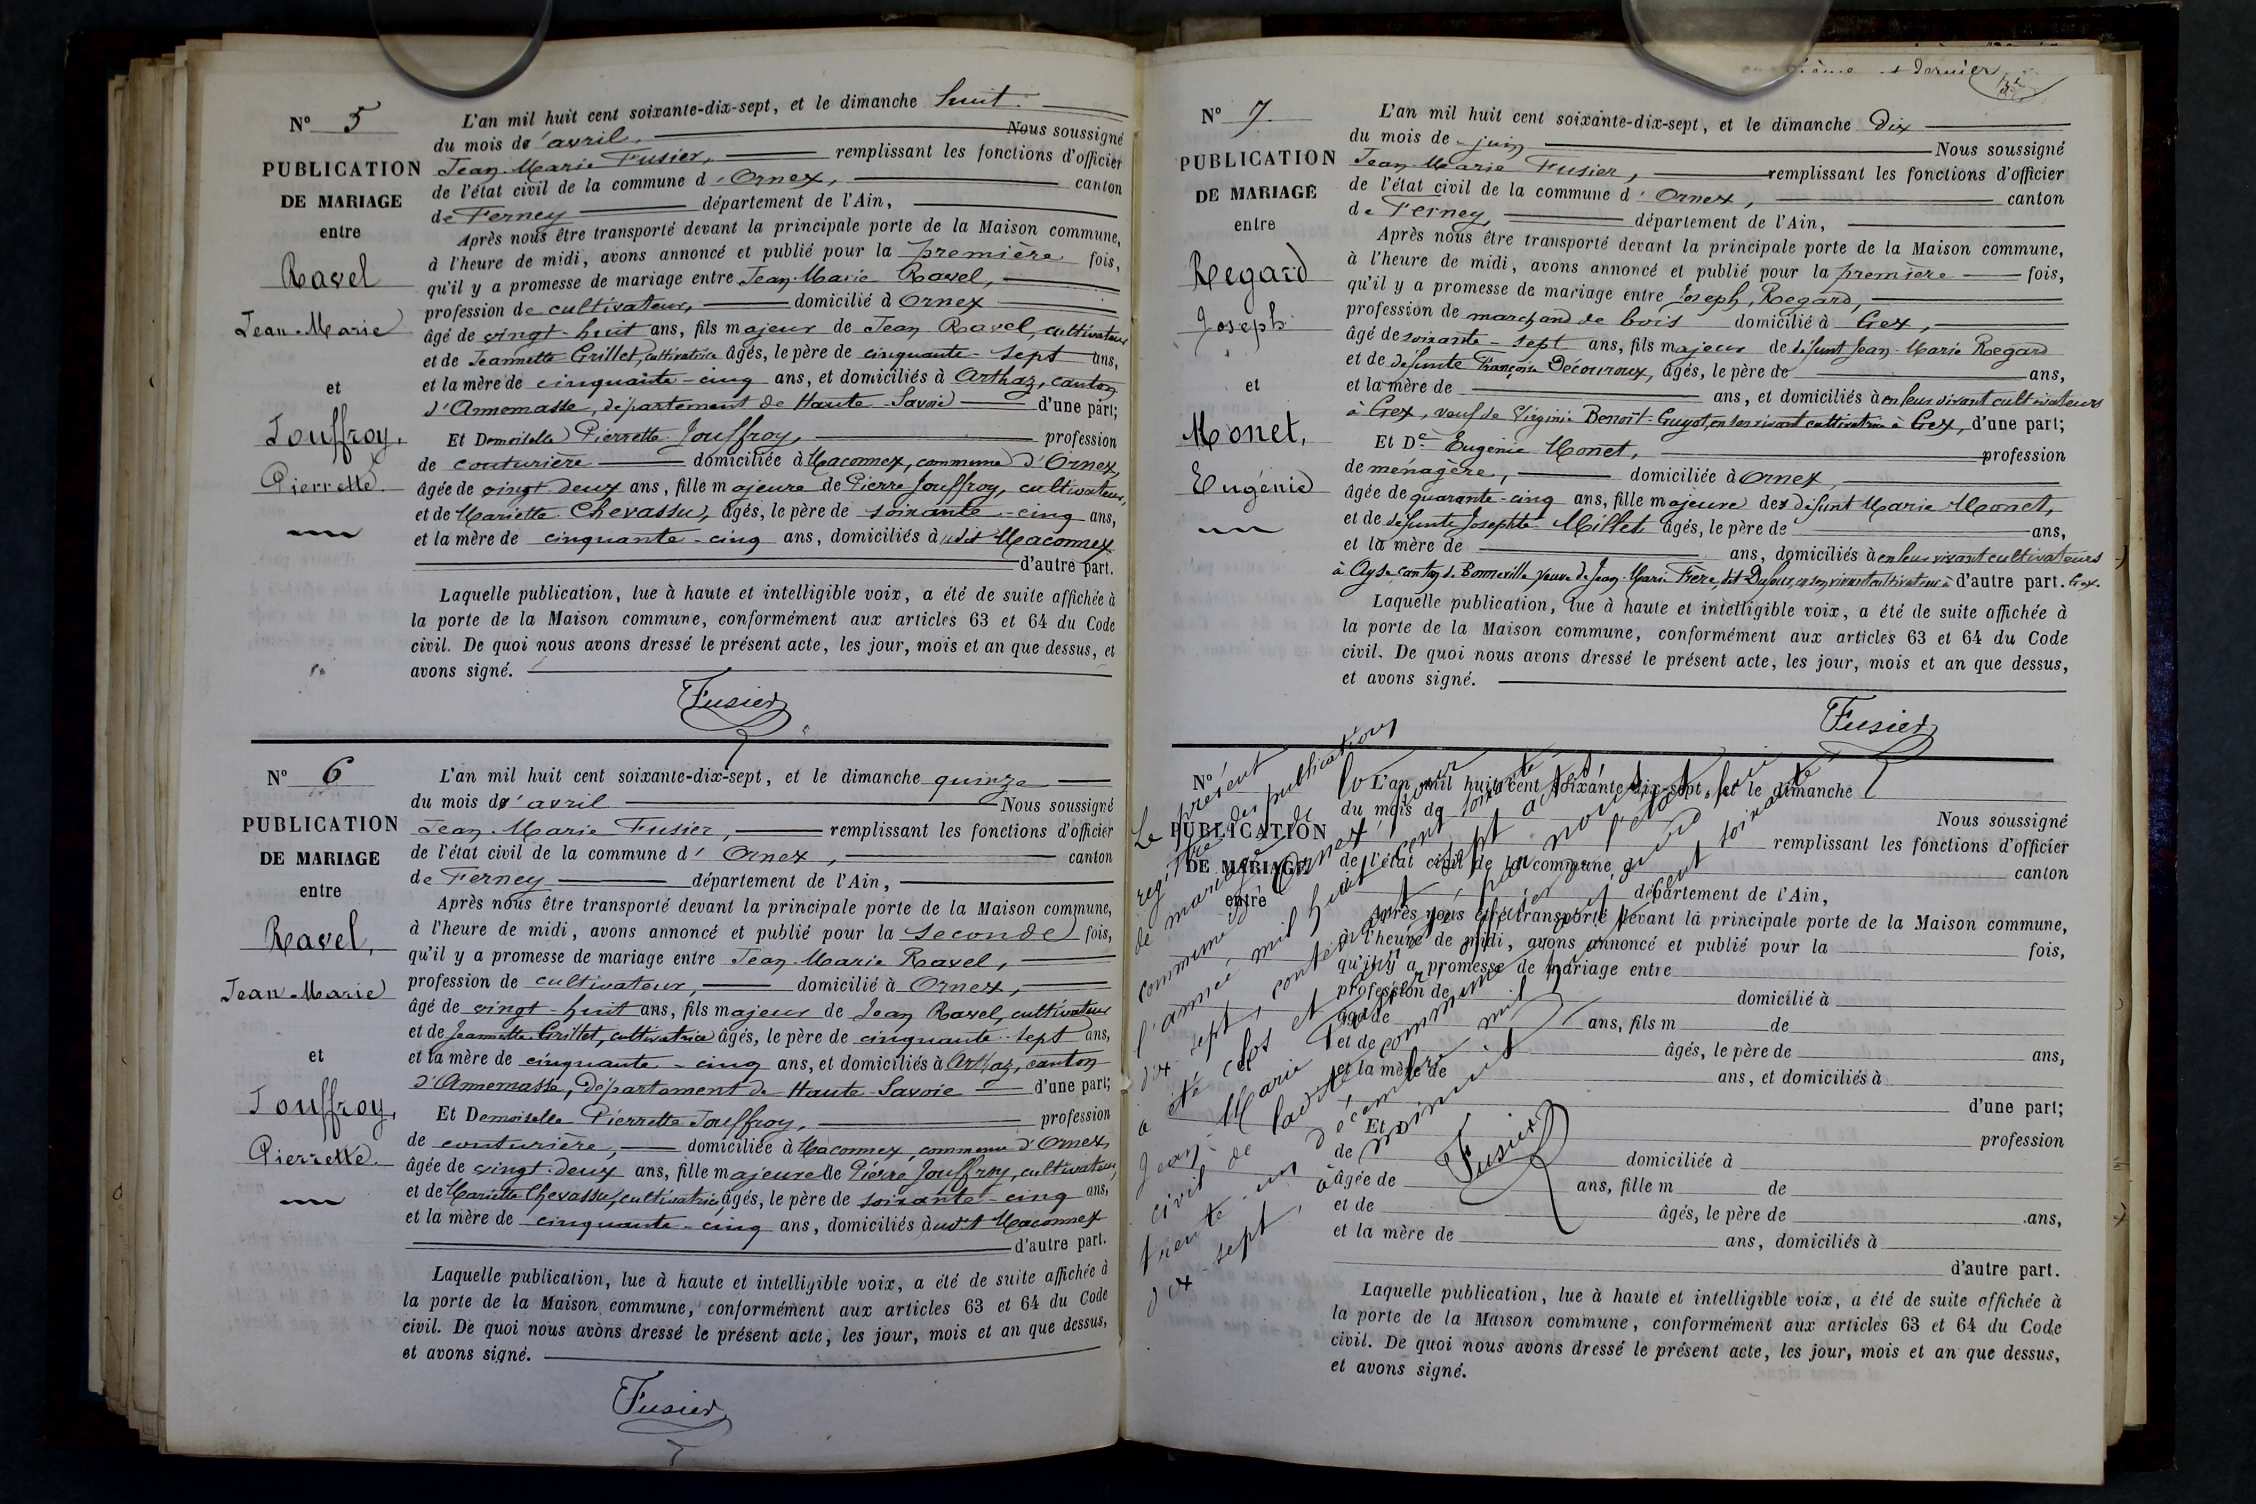 N° 5
PUBLICATION
DE MARIAGE
entre
Ravel
Jean-Marie
et
Jouffroy,
Pierrette.
L'an mil huit cent soixante-dix-sept, et le dimanche huit
du mois d'avril, Nous soussigné
Jean-Marie Fusier, remplissant les fonctions d'officier
de l'état civil de la commune d'Ornex, canton
de Ferney département de l'Ain,
Après nous être transporté devant la principale porte de la Maison commune,
à l'heure de midi, avons annoncé et publié pour la première fois,
qu'il y a promesse de mariage entre Jean-Marie Ravel,
profession de cultivateur, domicilié à Ornex
âgé de vingt-huit ans, fils majeur de Jean Ravel, cultivateur
et de Jeannette Grillet, cultivatrice âgés, le père de cinquante-sept ans,
et la mère de cinquante-cinq ans, et domiciliés à Arthaz, canton
d'Annemasse, département de Haute-Savoie d'une part;
Et Demoiselle Pierrette Jouffroy, profession
de couturière domiciliée à Maconnex, commune d'Ornex,
âgée de vingt-deux ans, fille majeure de Pierre Jouffroy, cultivateur,
et de Mariette Chevassu, âgés, le père de soixante-cinq ans,
et la mère de cinquante-cinq ans, domiciliés à udit Maconnex
d'autre part.
Laquelle publication, lue à haute et intelligible voix, a été de suite affichée à
la porte de la Maison commune, conformément aux articles 63 et 64 du Code
civil. De quoi nous avons dressé le présent acte, les jour, mois et an que dessus, et
avons signé.
Fusier
N° 6
PUBLICATION
DE MARIAGE
entre
Ravel,
Jean-Marie
et
Jouffroy,
Pierrette.
L'an mil huit cent soixante-dix-sept, et le dimanche quinze
du mois d'avril Nous soussigné
Jean-Marie Fusier, remplissant les fonctions d'officier
de l'état civil de la commune d'Ornex, canton
de Ferney département de l'Ain,
Après nous être transporté devant la principale porte de la Maison commune,
à l'heure de midi, avons annoncé et publié pour la seconde fois,
qu'il y a promesse de mariage entre Jean-Marie Ravel,
profession de cultivateur, domicilié à Ornex,
âgé de vingt-huit ans, fils majeur de Jean Ravel, cultivateur
et de Jeannette Grillet, cultivatrice âgés, le père de cinquante-sept ans,
et la mère de cinquante-cinq ans, et domiciliés à Arthaz, canton
d'Annemasse, Département de Haute-Savoie d'une part;
Et Demoiselle Pierrette Jouffroy, profession
de couturière, domiciliée à Maconnex, commune d'Ornex
âgée de vingt-deux ans, fille majeure de Pierre Jouffroy, cultivateur,
et de Mariette Chevassu, cultivatrice, âgés, le père de soixante-cinq ans,
et la mère de cinquante-cinq ans, domiciliés à udit Maconnex
d'autre part.
Laquelle publication, lue à haute et intelligible voix, a été de suite affichée à
la porte de la Maison commune, conformément aux articles 63 et 64 du Code
civil. De quoi nous avons dressé le présent acte, les jour, mois et an que dessus,
et avons signé.
Fusier
et dernier
N° 7
PUBLICATION
DE MARIAGE
entre
Regard
Joseph
et
Monet,
Eugénie
L'an mil huit cent soixante-dix-sept, et le dimanche dix
du mois de juin Nous soussigné
Jean-Marie Fusier, remplissant les fonctions d'officier
de l'état civil de la commune d'Ornex, canton
de Ferney, département de l'Ain,
Après nous être transporté devant la principale porte de la Maison commune,
à l'heure de midi, avons annoncé et publié pour la première fois,
qu'il y a promesse de mariage entre Joseph Regard,
profession de marchand de bois domicilié à Gex,
âgé de soixante-sept ans, fils majeur de défunt Jean-Marie Regard
et de défunte Françoise Découroux, âgés, le père de ans,
et la mère de ans, et domiciliés à en leur vivant cultivateurs
à Gex, veuf de Virginie Benoit-Guyot, en son vivant cultivatrice à Gex, d'une part;
Et De Eugénie Monet, profession
de ménagère, domiciliée à Ornex,
âgée de quarante-cinq ans, fille majeure de défunt Marie Monet,
et de défunte Josephte Millet âgés, le père de ans,
et la mère de ans, domiciliés à en leur vivant cultivateurs
à Ayse canton de Bonneville veuve de Jean-Marie Frere, dit Dufour, en son vivant cultivateur à d'autre part. Gex.
Laquelle publication, lue à haute et intelligible voix, a été de suite affichée à
la porte de la Maison commune, conformément aux articles 63 et 64 du Code
civil. De quoi nous avons dressé le présent acte, les jour, mois et an que dessus,
et avons signé.
Fusier
N°
PUBLICATION
DE MARIAGE
entre
L'an mil huit cent soixante-dix-sept, et le dimanche
du mois de Nous soussigné
remplissant les fonctions d'officier
de l'état civil de la commune d canton
d département de l'Ain,
Après nous être transporté devant la principale porte de la Maison commune,
à l'heure de midi, avons annoncé et publié pour la fois,
qu'il y a promesse de mariage entre
profession de domicilié à
âgé de ans, fils m de
et de âgés, le père de ans,
et la mère de ans, et domiciliés à
d'une part;
Et D profession
de domiciliée à
âgée de ans, fille m de
et de âgés, le père de ans,
et la mère de ans, domiciliés à
d'autre part.
Laquelle publication, lue à haute et intelligible voix, a été de suite affichée à
la porte de la Maison commune, conformément aux articles 63 et 64 du Code
civil. De quoi nous avons dressé le présent acte, les jour, mois et an que dessus,
et avons signé.
Le présent
registre des publications
de mariage de la
commune d'Ornex, pour
l'année mil huit cent soixante
dix sept, contenant sept actes,
a été clos et par nous,
Jean-Marie Fusier, officier de l'état
civil de ladite commune,
trente-un décembre mil huit cent soixante
dix sept, à minuit
Fusier